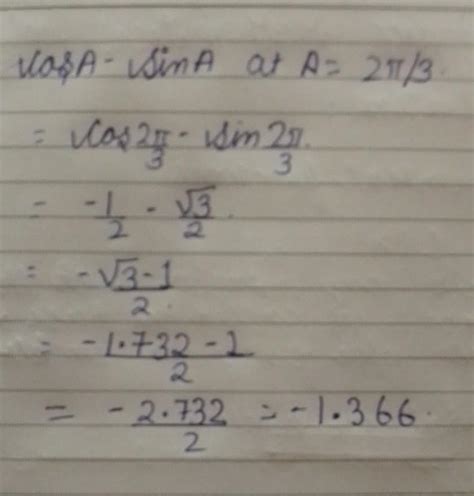 cosA - sinA at A = 2π/3.
= cos 2π/3 - sin 2π/3.
= -1/2 - √3/2.
= -√3-1/2.
= -1.732 - 1/2
= -2.732/2 = -1.366.